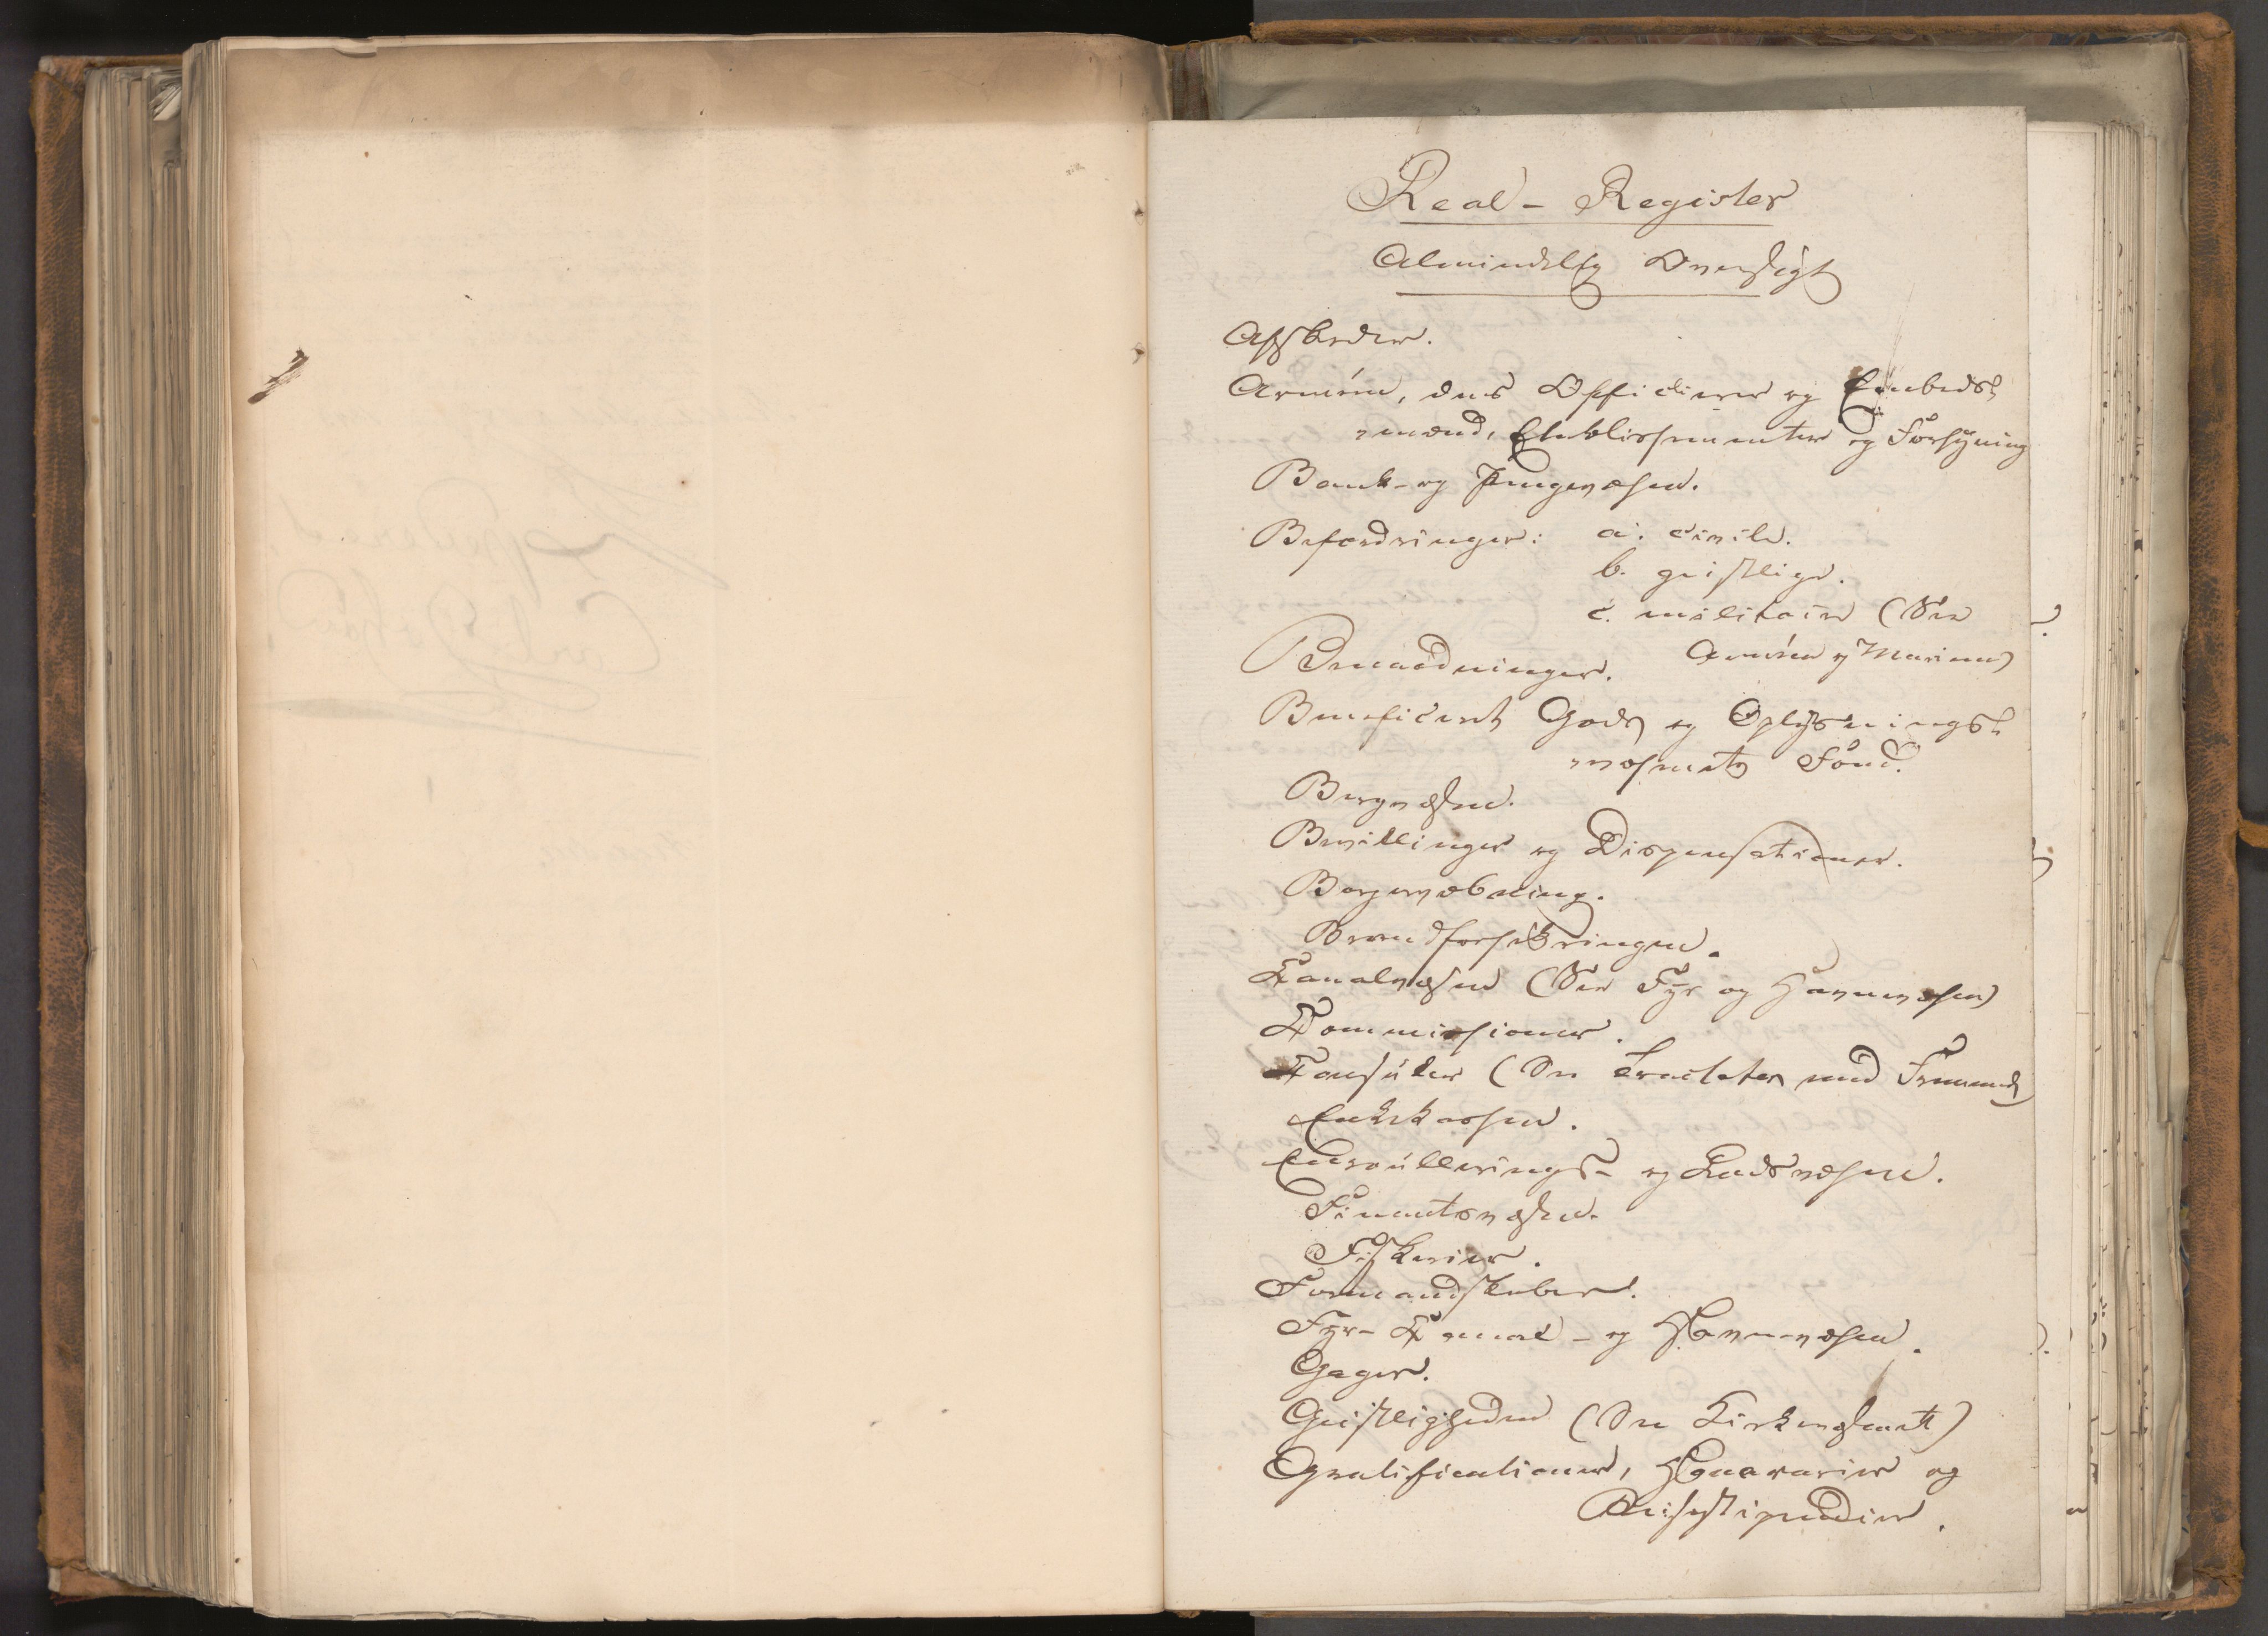 Real- Register
Almindelig Oversigt
Afskeder.
Armeen, dens Officierer og Embeds-
mænd, Etablissementer og Forsyning
Bank- og Pengevæsen.
Befordringer: a. civile.
b. geistlige.
c. militaire (See
Armeen og Marinen)
Benaadninger.
Beneficeret Gods og Oplysnings-
væsenets Fond.
Bergvæsen.
Bevillinger og Dispensationer.
Borgervæbning.
Brandforsikringen.
Kanalvæsen (See Fyr og Havnevæsen)
Kommissioner.
Konsuler (See Tractater med Fremmede)
Enkekassen.
Enroullerings- og Lodsvæsen.
Finantsvæsen.
Fiskerier.
Formandskaber.
Fyr- Kanal- og Havnevæsen.
Gager.
Geistligheden (See Kirkevæsenet)
Gratificationer, Honorarier og
Reisestipendier.